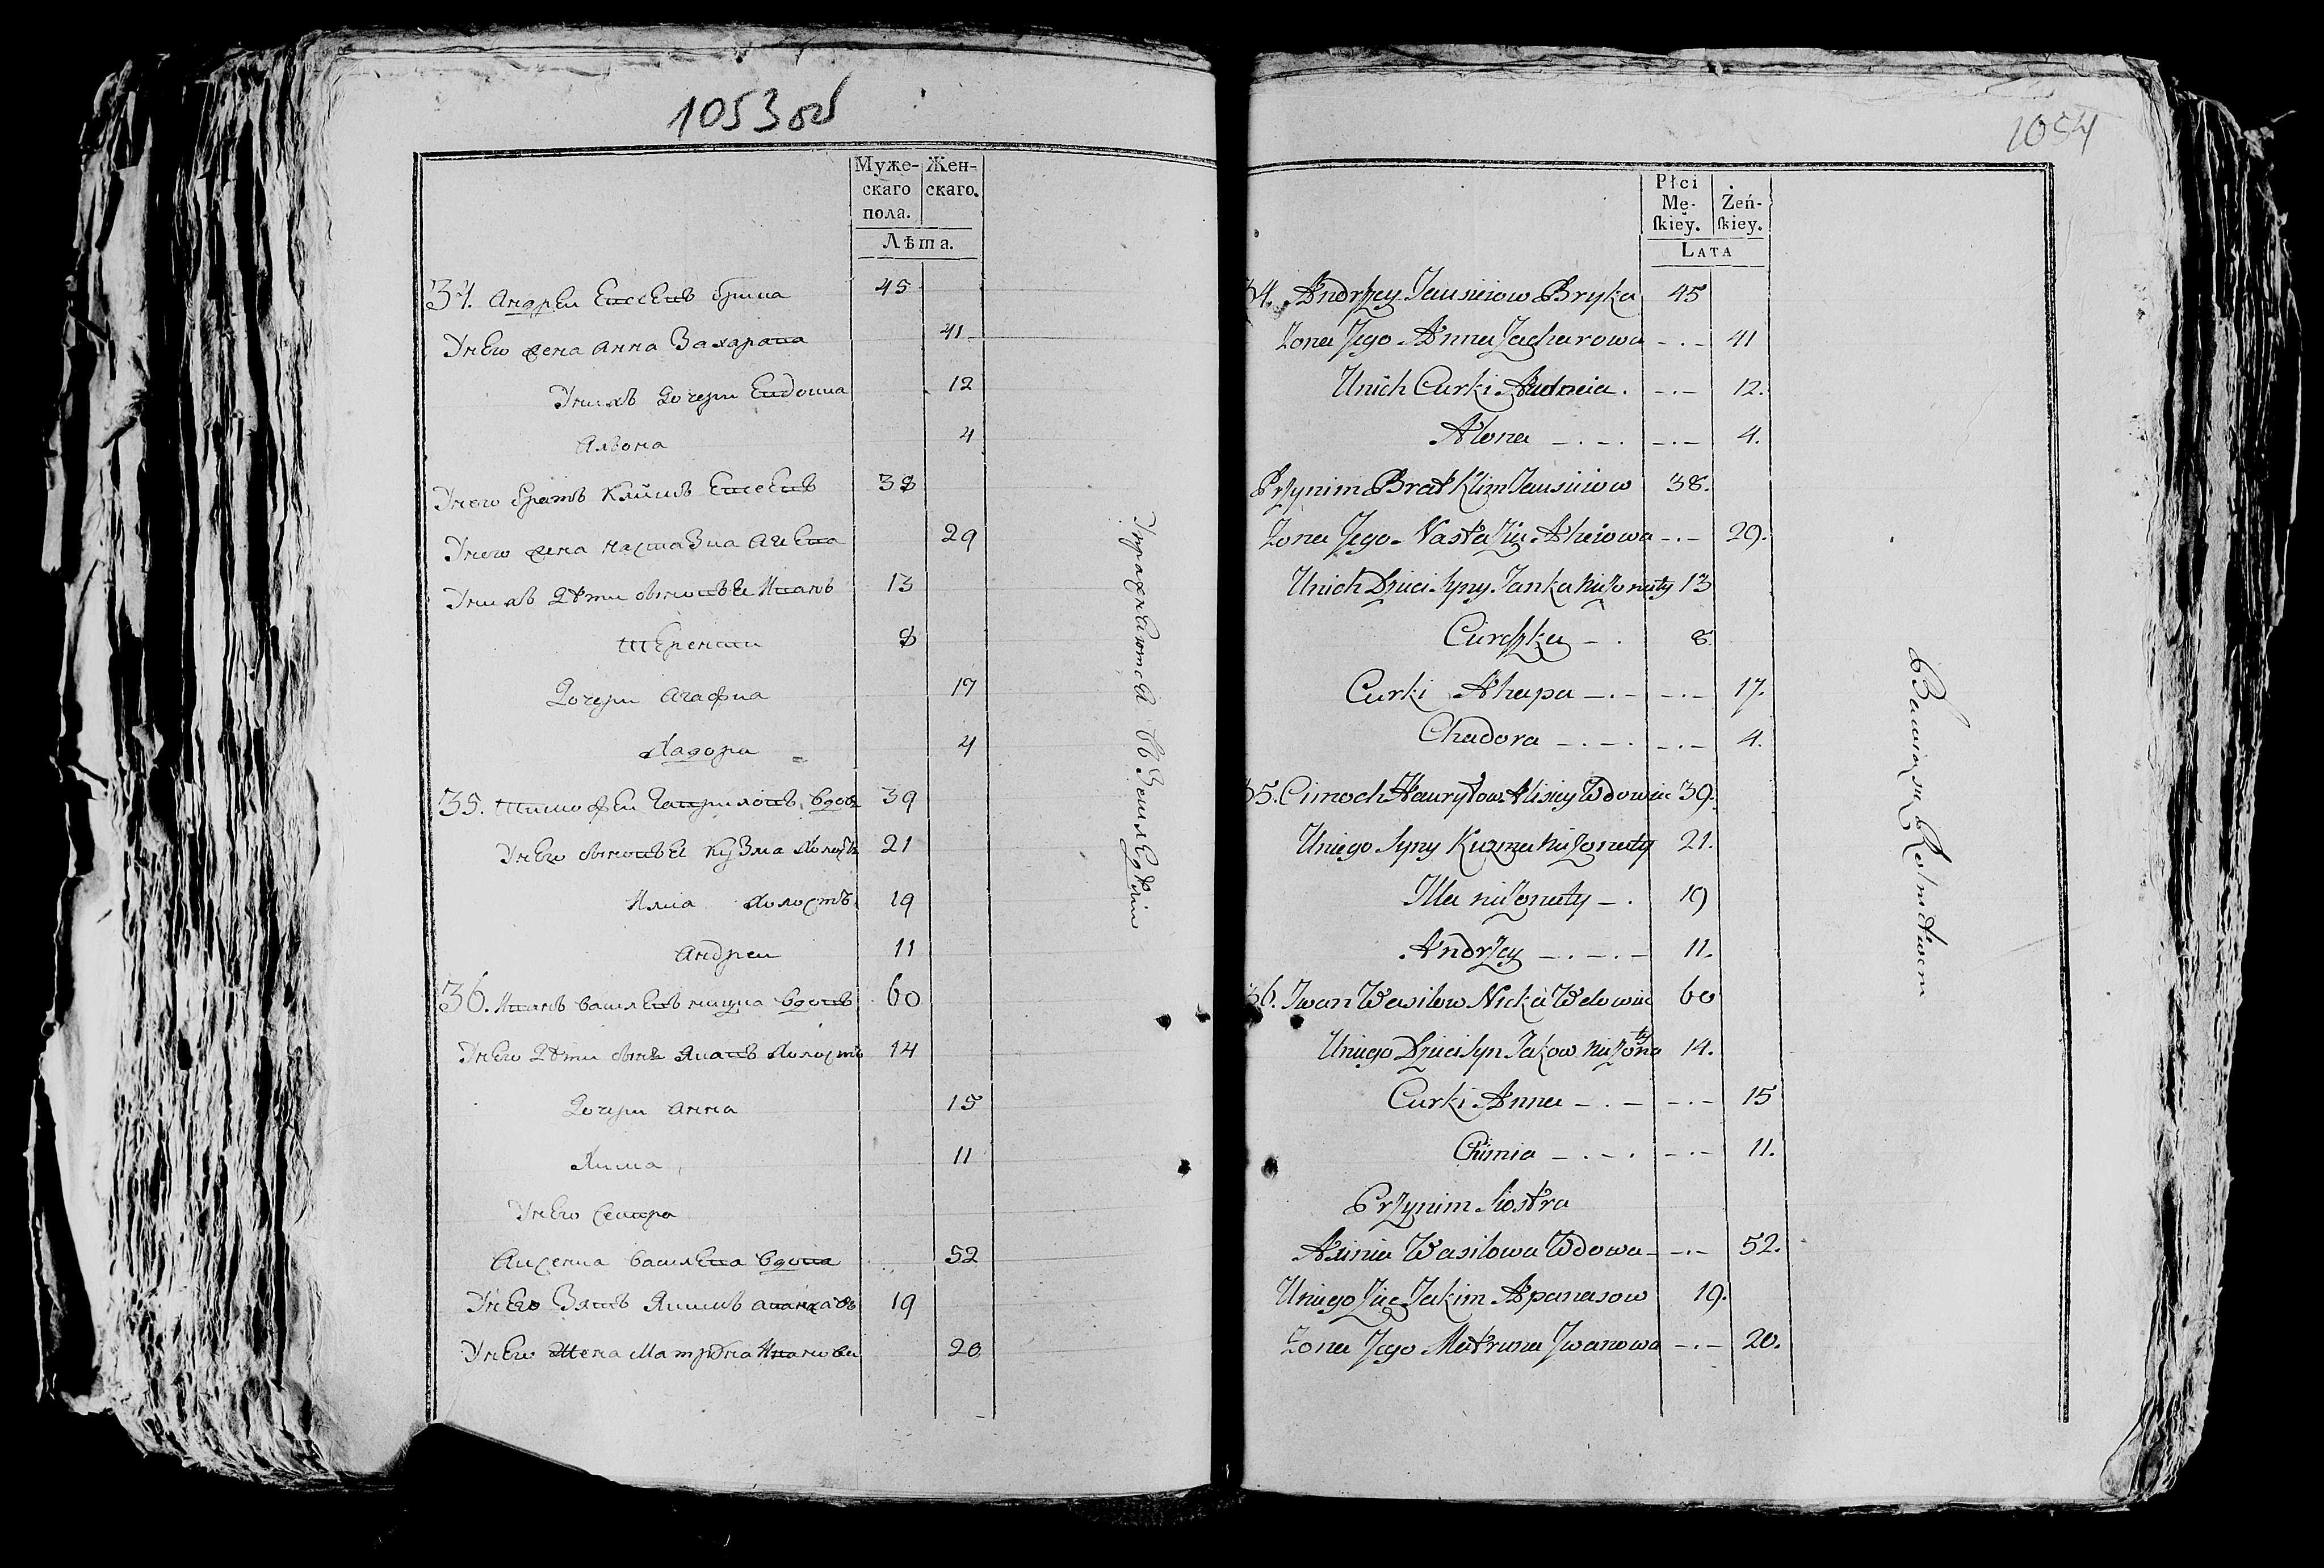 1053 об
Муже- Жен-
скаго скаго.
пола.
Лѣта.
34. Андреи Евсеевъ брика 45
Унего жена Анна Захарава 41
Унихъ дочери Евдокиа 12
Алѣона 4
Унего братъ Климъ Евсеевъ 38
Унего жена Настазиа 29
Унихъ дѣти сыновьѧ Иванъ 13
Терентии 8
Дочери Агафиа 17
Хадора 4
35. Тимофеи Гавриловъ вдовъ 39
Унего сыновьѧ Кузма холостъ 21
Илиа холостъ 19
Андреи 11
36. Иванъ Василевъ вдовъ 60
Унего дѣти сынъ Яковъ холостъ 14
Дочери Анна 15
Химиа 11
Унего сестра
Аксениа Василева вдова 52
Унего Зять Якимъ 19
Унего жена Матруна Иванова 20
Упражнѧютсѧ въ Земледѣлии
1054
Płci
Mę- Żeń-
ſkiey. ſkiey.
LATA
34. Andrzey Jewsieiow Bryka 45
Zona Jego Anna Zacharowa -.- 41
Unich Curki Audocia. -.- 12.
Alona -.-. -.- 4.
Przynim Brat Klim Jewsieiow 38.
Zona Jego Nastazia Aheiowa -.- 29.
Unich Dzieci Syny Janka nieżonaty 13
Cireszka -. 8.
Curki Ahapa -.- -.- 17.
Chadora -.-. -.- 4.
35. Cimoch Hawryłow Wdowiec 39.
Uniego Syny Kuzma nieżonaty 21.
Illa nieżonaty -. 19
Andrzey -.-.- 11.
36. Jwan Wasilow Wdowiec 60
Uniego Dzieci Syn Jakow nieżonaty 14.
Curki Anna -.- -.- 15
Chimia -.-. -.- 11.
Przynim Siostra
Axinia Wasilowa Wdowa -.- 52.
Uniego Zięć Jakim Apanasow 19.
Zona Jego Matruna Jwanowa -.- 20.
Bawią się Rolnictwem